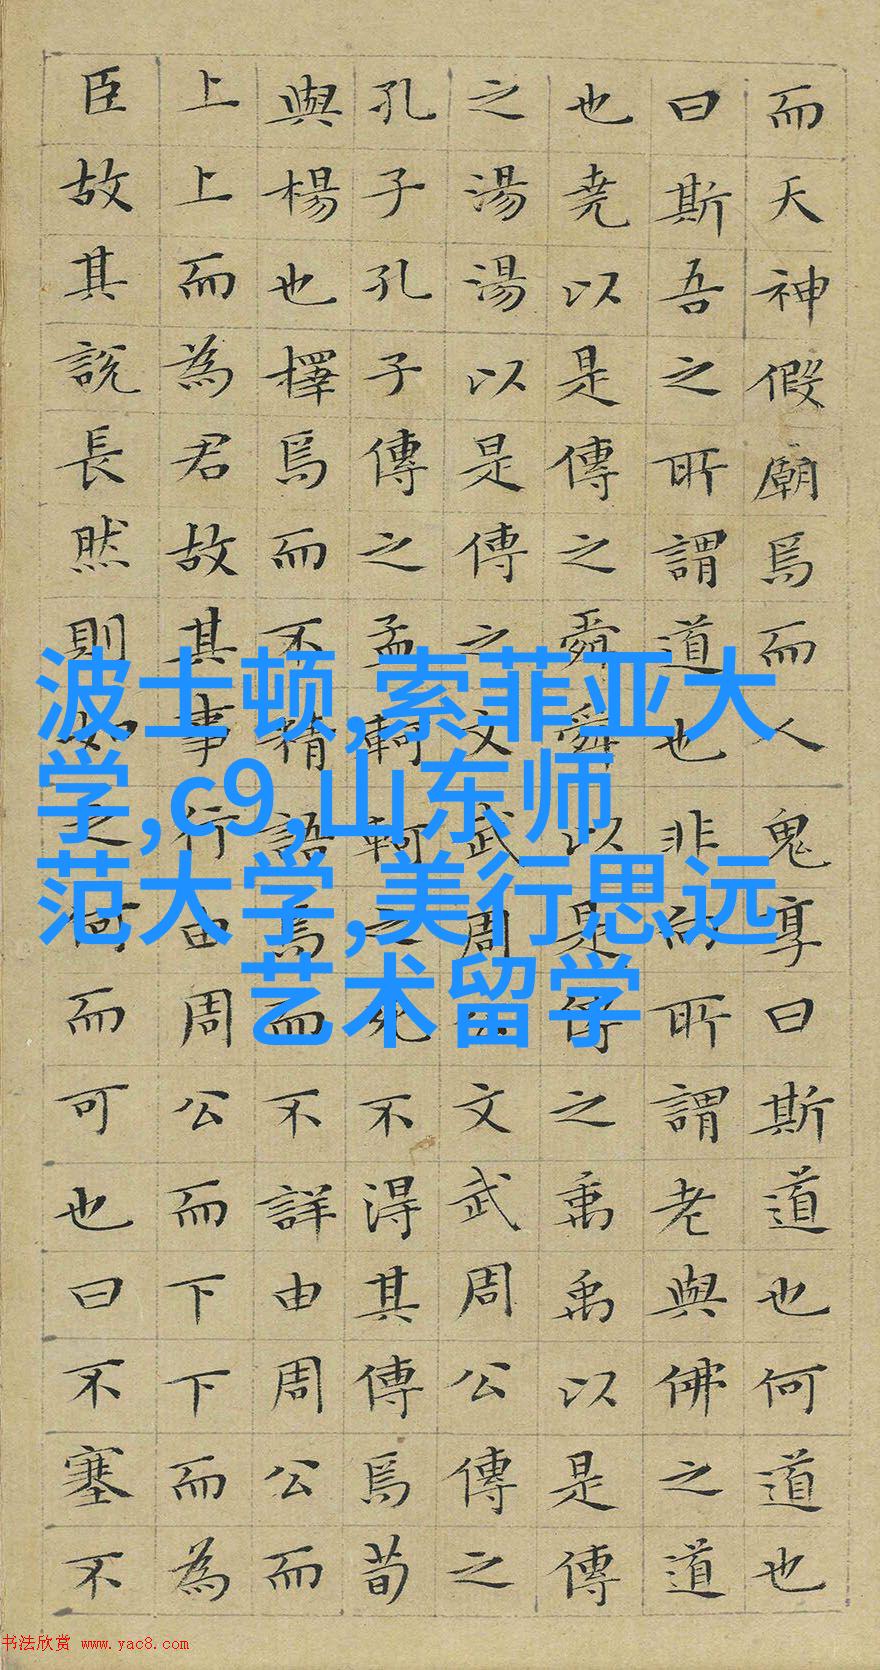 而天神假廟焉而人鬼享曰斯道也何道也
曰斯吾之所謂道也非向所謂老與佛之道
也堯以是傳之舜舜以是傳之禹禹以是傳
之湯湯以是傳之文武周公文武周公傳之
孔子孔子傳之孟軻軻之死不得其傳焉荀
與楊也擇焉而不精語焉而不詳由周公而
上上而為君故其事行由周公而下下而為
臣故其說長然則如之何而可也曰不塞不
波士顿,索菲亚大
学,c9,山东师
范大学,美行思远
艺术留学
书法欣赏 www.yac8.com